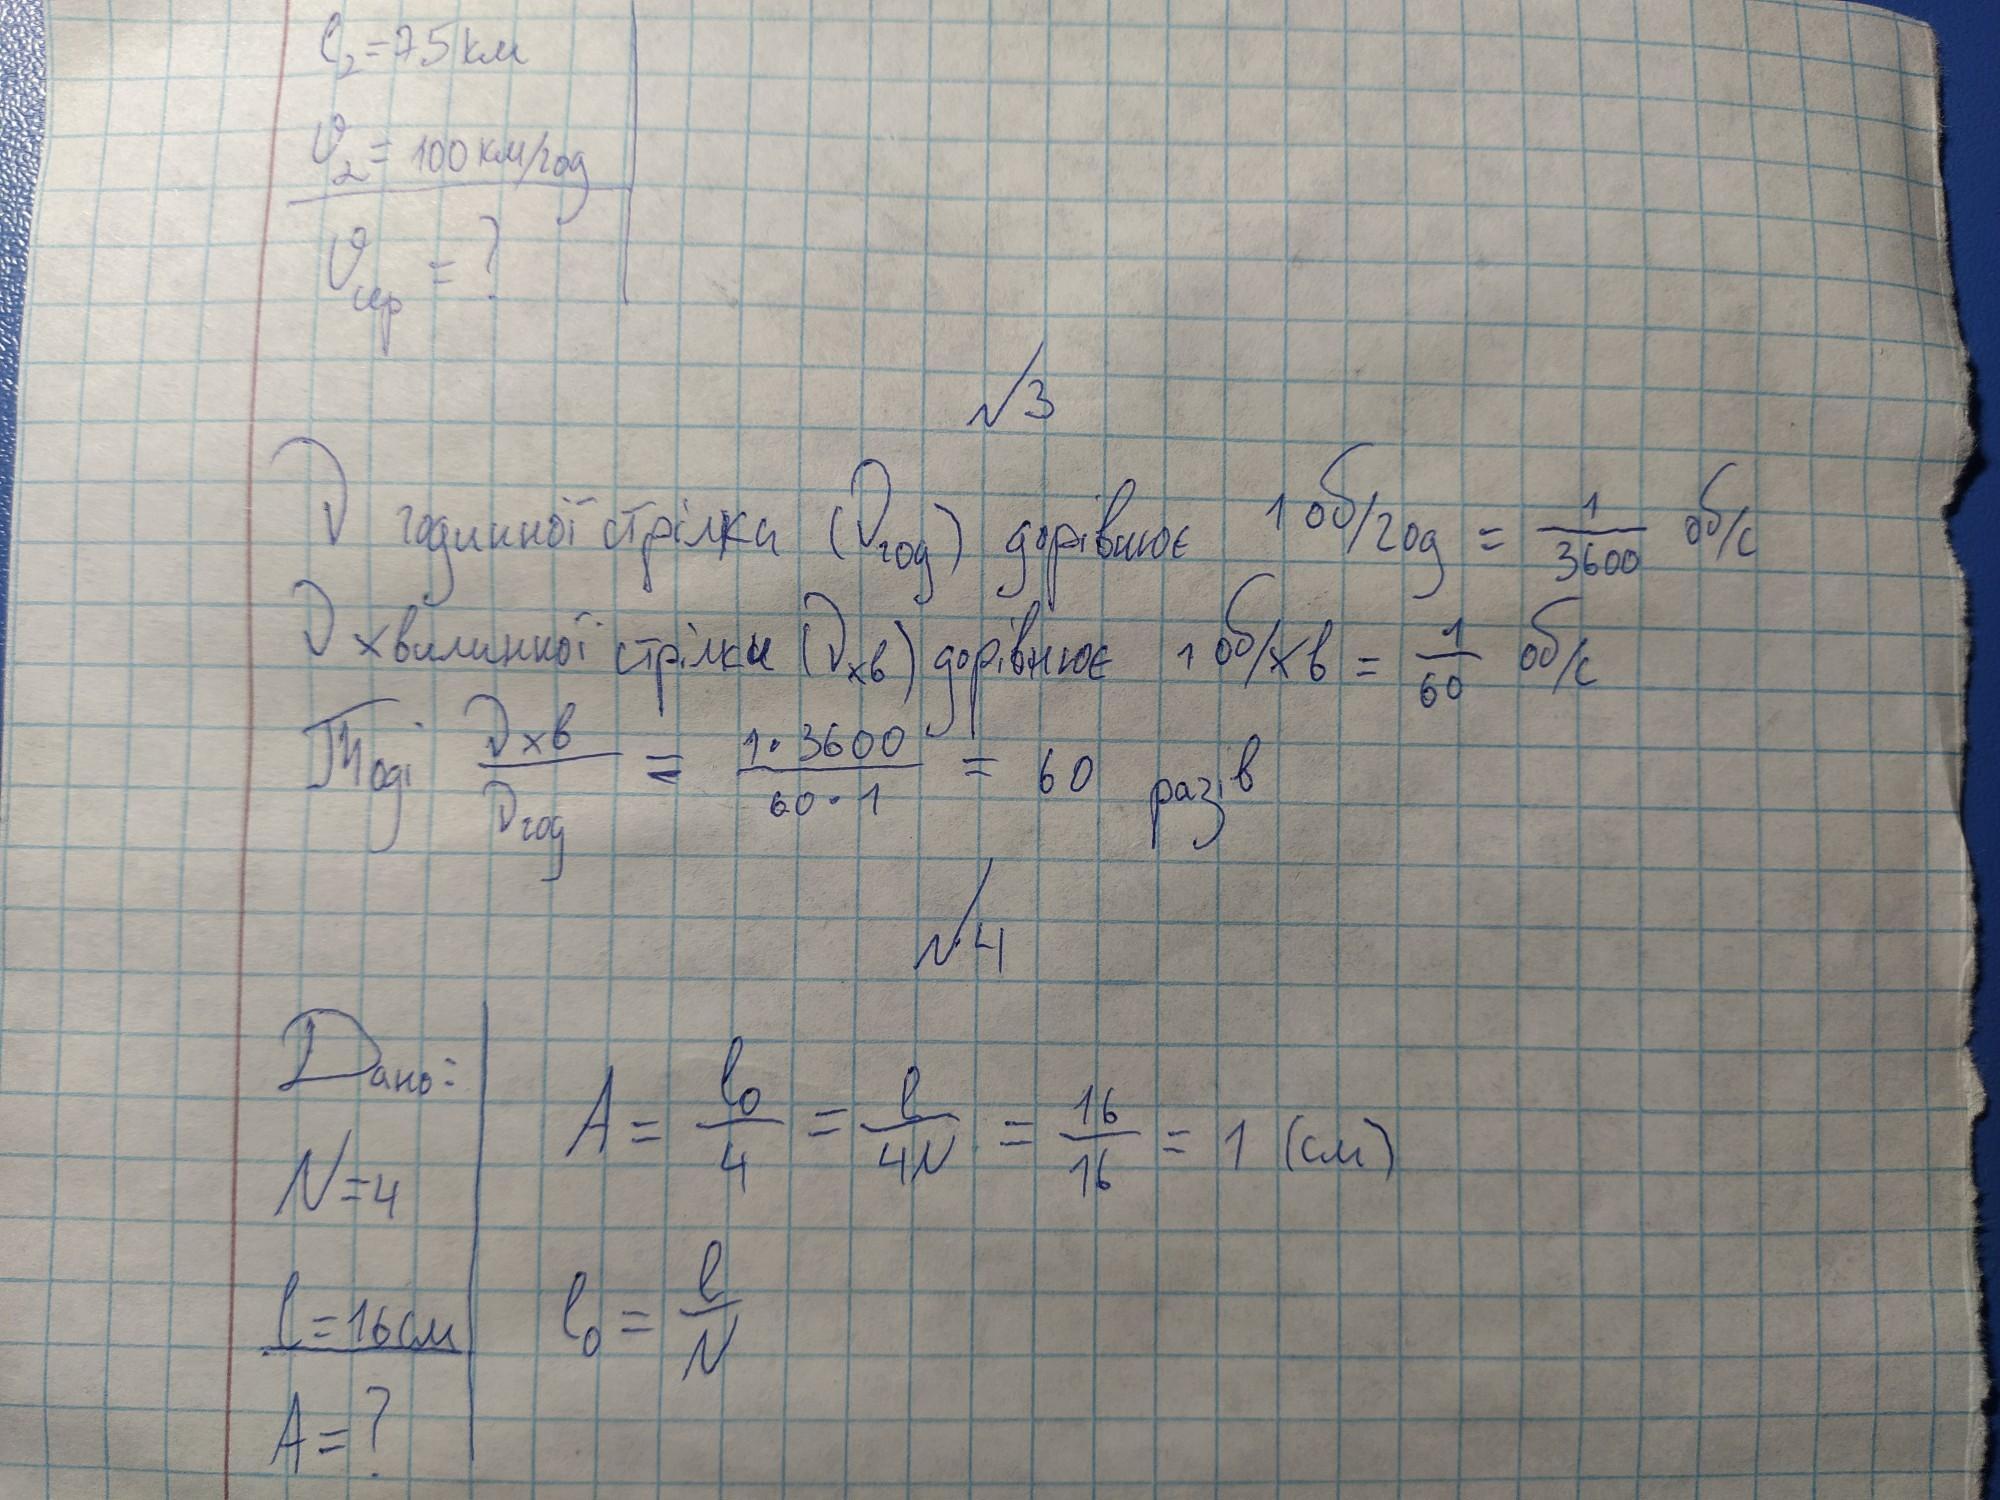 l₂ = 75 км
υ₂ = 100 км/год
υсер = ?
№3
υ годинної стрілки (υгод) дорівнює 1 об/год = 1/3600 об/с
υ хвилинної стрілки (υхв) дорівнює 1 об/хв = 1/60 об/с
Тоді υхв/υгод = 1·3600/60·1 = 60 разів
№4
Дано:
A = l₀/4 = l/4N = 16/16 = 1 (см)
N = 4
l = 16 см
l₀ = l/N
A = ?